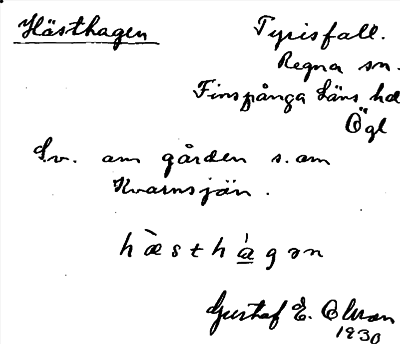 Hästhagen
Tyrisfall.
Regna sn.
Finspånga läns hd
Ögl
Lv. om gården s. om
Kvarnsjön.
hæ̀sthá̱gən
Gustaf E. Olsson
1930